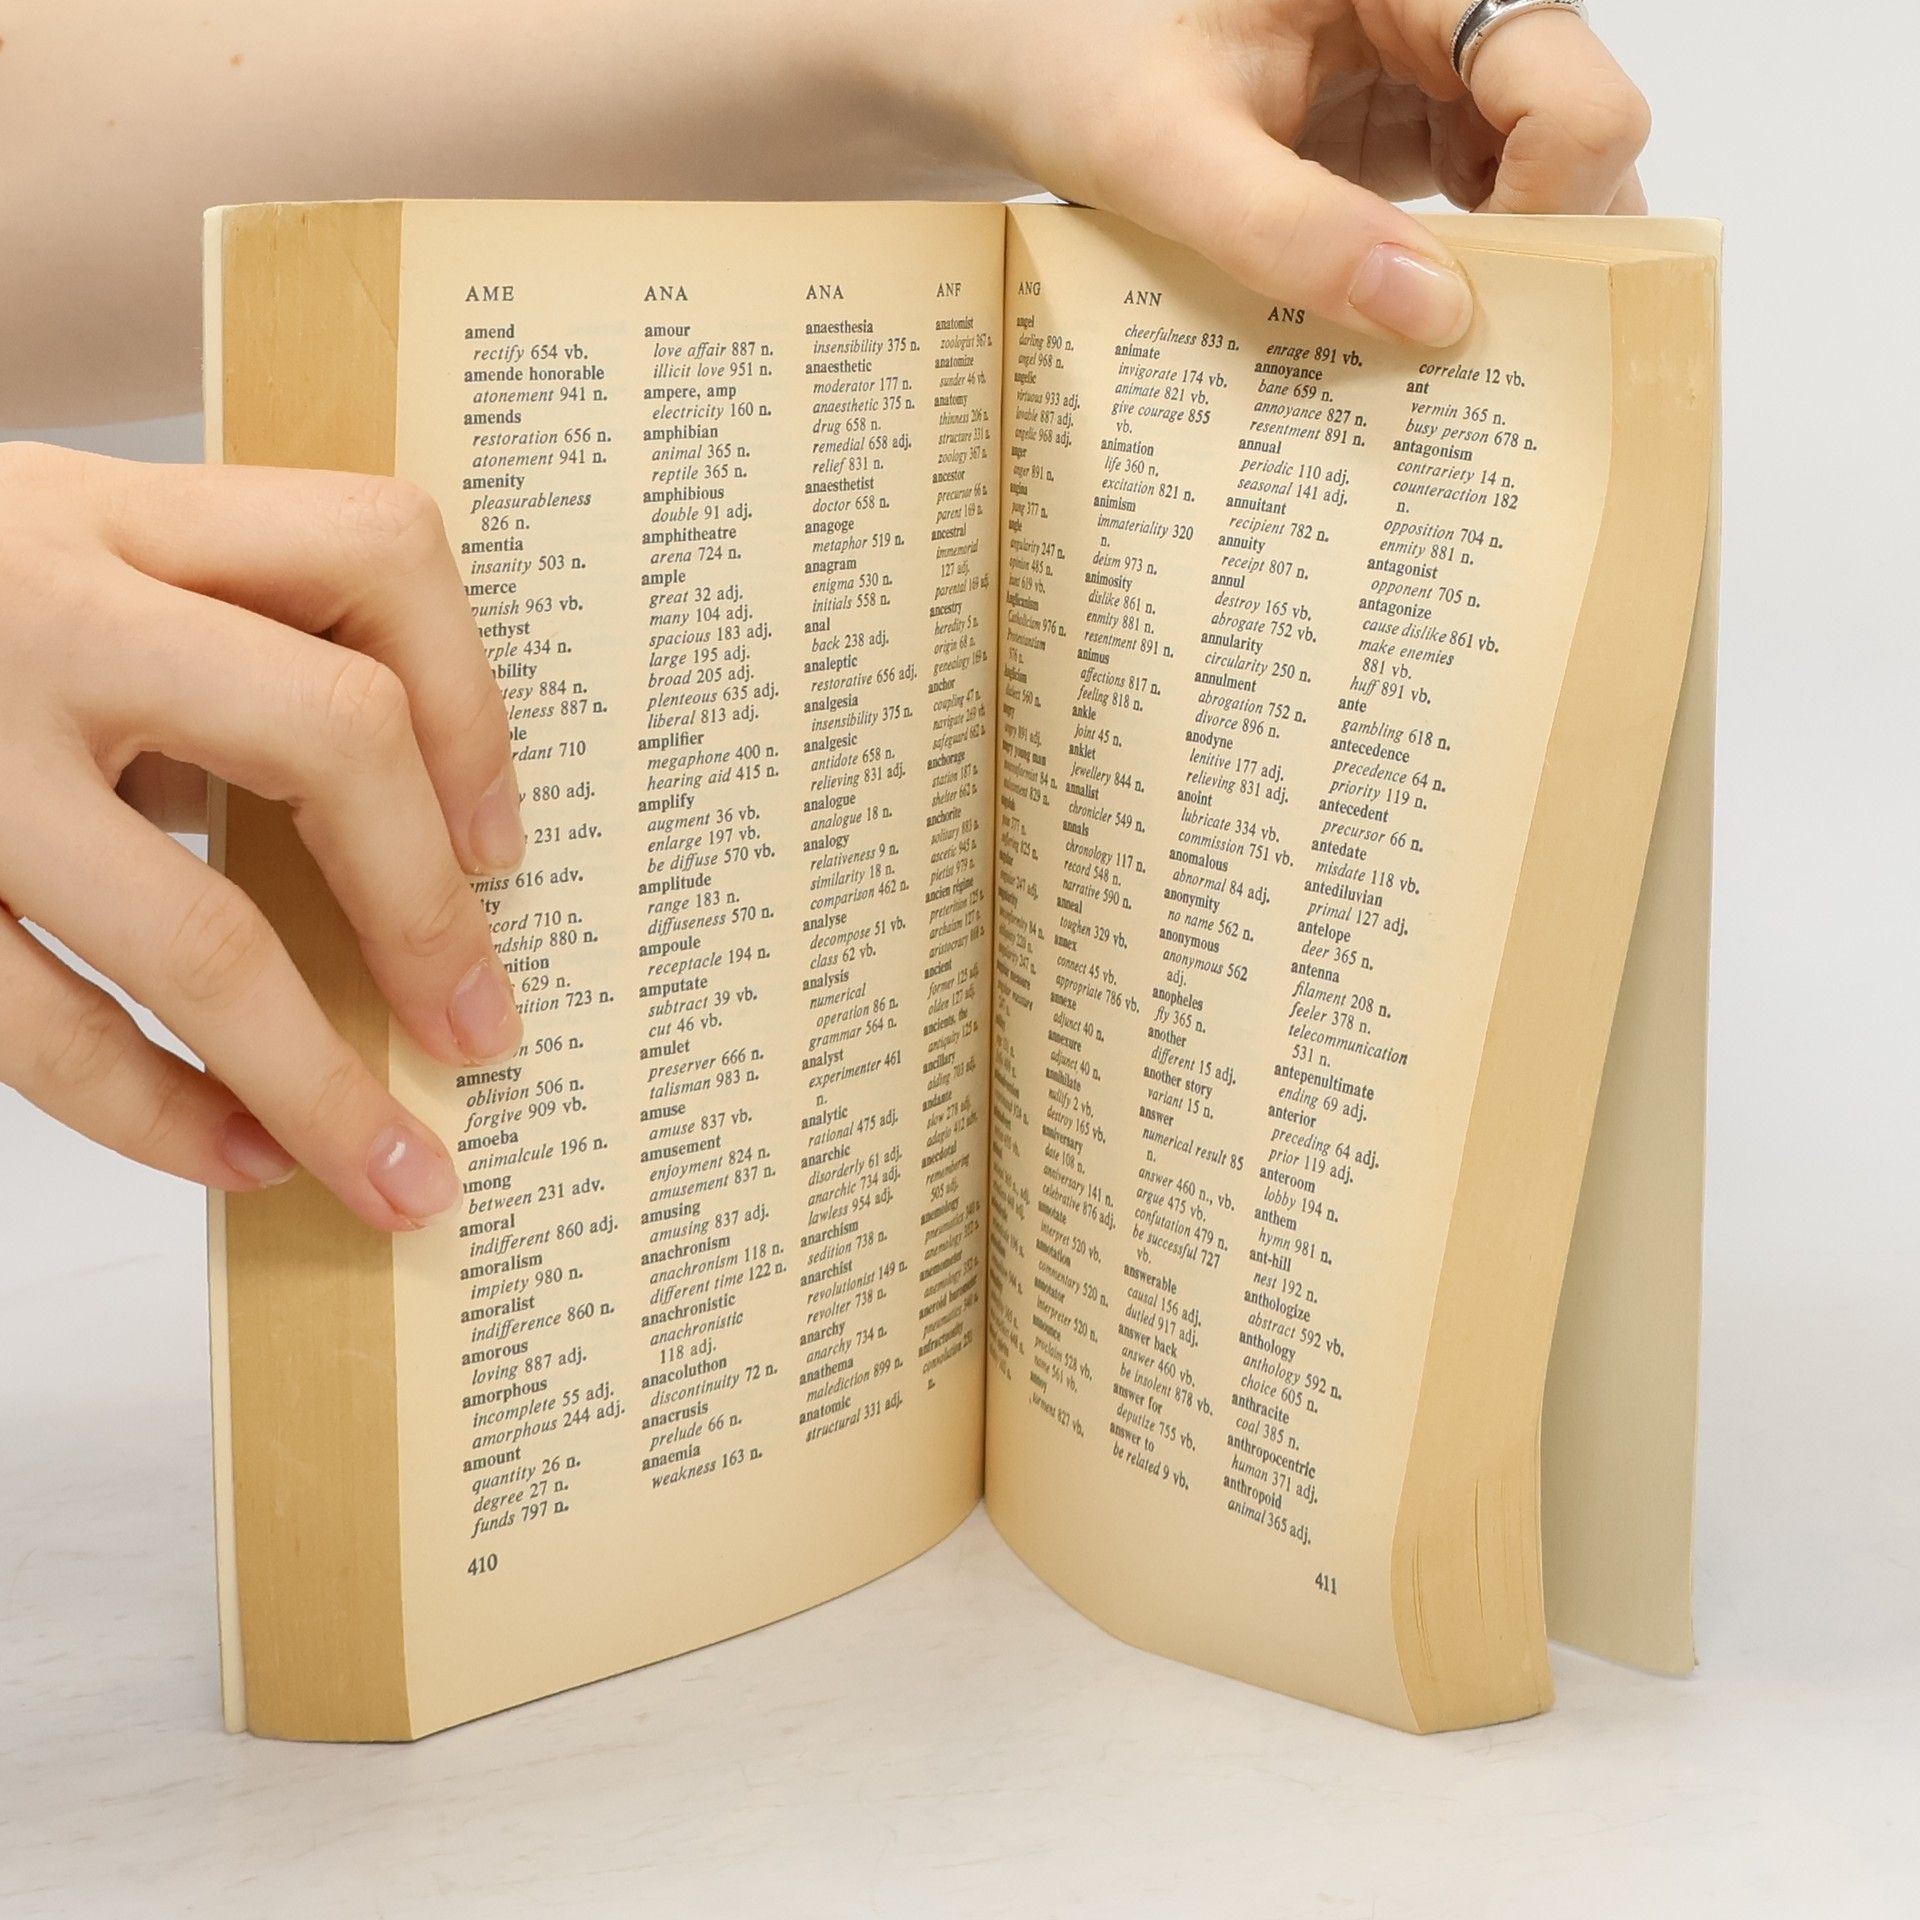 AME
amend
rectify 654 vb.
amende honorable
atonement 941 n.
amends
restoration 656 n.
atonement 941 n.
amenity
pleasurableness
826 n.
amentia
insanity 503 n.
punish 963 vb.
434 n.
884 n.
887 n.
710
880 adj.
231 adv.
616 adv.
710 n.
880 n.
629 n.
723 n.
506 n.
amnesty
oblivion 506 n.
forgive 909 vb.
amoeba
animalcule 196 n.
among
between 231 adv.
amoral
indifferent 860 adj.
amoralism
impiety 980 n.
amoralist
indifference 860 n.
amorous
loving 887 adj.
amorphous
incomplete 55 adj.
amorphous 244 adj.
amount
quantity 26 n.
degree 27 n.
funds 797 n.
410
ANA
amour
love affair 887 n.
illicit love 951 n.
ampere, amp
electricity 160 n.
amphibian
animal 365 n.
reptile 365 n.
amphibious
double 91 adj.
amphitheatre
arena 724 n.
ample
great 32 adj.
many 104 adj.
spacious 183 adj.
large 195 adj.
broad 205 adj.
plenteous 635 adj.
liberal 813 adj.
amplifier
megaphone 400 n.
hearing aid 415 n.
amplify
augment 36 vb.
enlarge 197 vb.
be diffuse 570 vb.
amplitude
range 183 n.
diffuseness 570 n.
ampoule
receptacle 194 n.
amputate
subtract 39 vb.
cut 46 vb.
amulet
preserver 666 n.
talisman 983 n.
amuse
amuse 837 vb.
amusement
enjoyment 824 n.
amusement 837 n.
amusing
amusing 837 adj.
anachronism
anachronism 118 n.
different time 122 n.
anachronistic
anachronistic
118 adj.
anacoluthon
discontinuity 72 n.
anacrusis
prelude 66 n.
anaemia
weakness 163 n.
ANA
anaesthesia
insensibility 375 n.
anaesthetic
moderator 177 n.
anaesthetic 375 n.
drug 658 n.
remedial 658 adj.
relief 831 n.
anaesthetist
doctor 658 n.
anagoge
metaphor 519 n.
anagram
enigma 530 n.
initials 558 n.
anal
back 238 adj.
analeptic
restorative 656 adj.
analgesia
insensibility 375 n.
analgesic
antidote 658 n.
relieving 831 adj.
analogue
analogue 18 n.
analogy
relativeness 9 n.
similarity 18 n.
comparison 462 n.
analyse
decompose 51 vb.
class 62 vb.
analysis
numerical
operation 86 n.
grammar 564 n.
analyst
experimenter 461
n.
analytic
rational 475 adj.
anarchic
disorderly 61 adj.
anarchic 734 adj.
lawless 954 adj.
anarchism
sedition 738 n.
anarchist
revolutionist 149 n.
revolter 738 n.
anarchy
anarchy 734 n.
anathema
malediction 899 n.
anatomic
structural 331 adj.
ANF
anatomist
zoologist 367 n.
anatomize
sunder 46 vb.
anatomy
thinness 206 n.
structure 331 n.
zoology 367 n.
ancestor
precursor 66 n.
parent 169 n.
ancestral
immemorial
127 adj.
parental 169 adj.
ancestry
heredity 5 n.
origin 68 n.
genealogy 169 n.
anchor
coupling 47 n.
navigate 269 vb.
safeguard 662 n.
anchorage
station 187 n.
shelter 662 n.
anchorite
solitary 883 n.
ascetic 945 n.
pietist 979 n.
ancien régime
preterition 125 n.
archaism 127 n.
aristocracy 868 n.
ancient
former 125 adj.
olden 127 adj.
ancients, the
antiquity 125 n.
ancillary
aiding 703 adj.
andante
slow 278 adj.
adagio 412 adv.
anecdotal
remembering
505 adj.
anemology
pneumatics 340 n.
anemology 352 n.
anemometer
anemology 352 n.
aneroid barometer
pneumatics 340 n.
anfractuosity
convolution 251
n.
ANG
angel
darling 890 n.
angel 968 n.
angelic
virtuous 933 adj.
lovable 887 adj.
angelic 968 adj.
anger
anger 891 n.
angina
pang 377 n.
angle
angularity 247 n.
opinion 485 n.
hunt 619 vb.
Anglicanism
Catholicism 976 n.
Protestantism
976 n.
Anglicism
dialect 560 n.
angry
angry 891 adj.
angry young man
nonconformist 84 n.
annalist
chronicler 549 n.
annals
chronology 117 n.
record 548 n.
narrative 590 n.
anneal
toughen 329 vb.
annex
connect 45 vb.
appropriate 786 vb.
annexe
adjunct 40 n.
annexure
adjunct 40 n.
annihilate
nullify 2 vb.
destroy 165 vb.
anniversary
date 108 n.
anniversary 141 n.
celebrative 876 adj.
annotate
interpret 520 vb.
annotation
commentary 520 n.
annotator
interpreter 520 n.
announce
proclaim 528 vb.
name 561 vb.
annoy
torment 827 vb.
ANN
cheerfulness 833 n.
animate
invigorate 174 vb.
animate 821 vb.
give courage 855
vb.
animation
life 360 n.
excitation 821 n.
animism
immateriality 320
n.
deism 973 n.
animosity
dislike 861 n.
enmity 881 n.
resentment 891 n.
animus
affections 817 n.
feeling 818 n.
ankle
joint 45 n.
anklet
jewellery 844 n.
ANS
enrage 891 vb.
annoyance
bane 659 n.
annoyance 827 n.
resentment 891 n.
annual
periodic 110 adj.
seasonal 141 adj.
annuitant
recipient 782 n.
annuity
receipt 807 n.
annul
destroy 165 vb.
abrogate 752 vb.
annularity
circularity 250 n.
annulment
abrogation 752 n.
divorce 896 n.
anodyne
lenitive 177 adj.
relieving 831 adj.
anoint
lubricate 334 vb.
commission 751 vb.
anomalous
abnormal 84 adj.
anonymity
no name 562 n.
anonymous
anonymous 562
adj.
anopheles
fly 365 n.
another
different 15 adj.
another story
variant 15 n.
answer
numerical result 85
n.
answer 460 n., vb.
argue 475 vb.
confutation 479 n.
be successful 727
vb.
answerable
causal 156 adj.
dutied 917 adj.
answer back
answer 460 vb.
be insolent 878 vb.
answer for
deputize 755 vb.
answer to
be related 9 vb.
correlate 12 vb.
ant
vermin 365 n.
busy person 678 n.
antagonism
contrariety 14 n.
counteraction 182
n.
opposition 704 n.
enmity 881 n.
antagonist
opponent 705 n.
antagonize
cause dislike 861 vb.
make enemies
881 vb.
huff 891 vb.
ante
gambling 618 n.
antecedence
precedence 64 n.
priority 119 n.
antecedent
precursor 66 n.
antedate
misdate 118 vb.
antediluvian
primal 127 adj.
antelope
deer 365 n.
antenna
filament 208 n.
feeler 378 n.
telecommunication
531 n.
antepenultimate
ending 69 adj.
anterior
preceding 64 adj.
prior 119 adj.
anteroom
lobby 194 n.
anthem
hymn 981 n.
ant-hill
nest 192 n.
anthologize
abstract 592 vb.
anthology
anthology 592 n.
choice 605 n.
anthracite
coal 385 n.
anthropocentric
human 371 adj.
anthropoid
animal 365 adj.
411